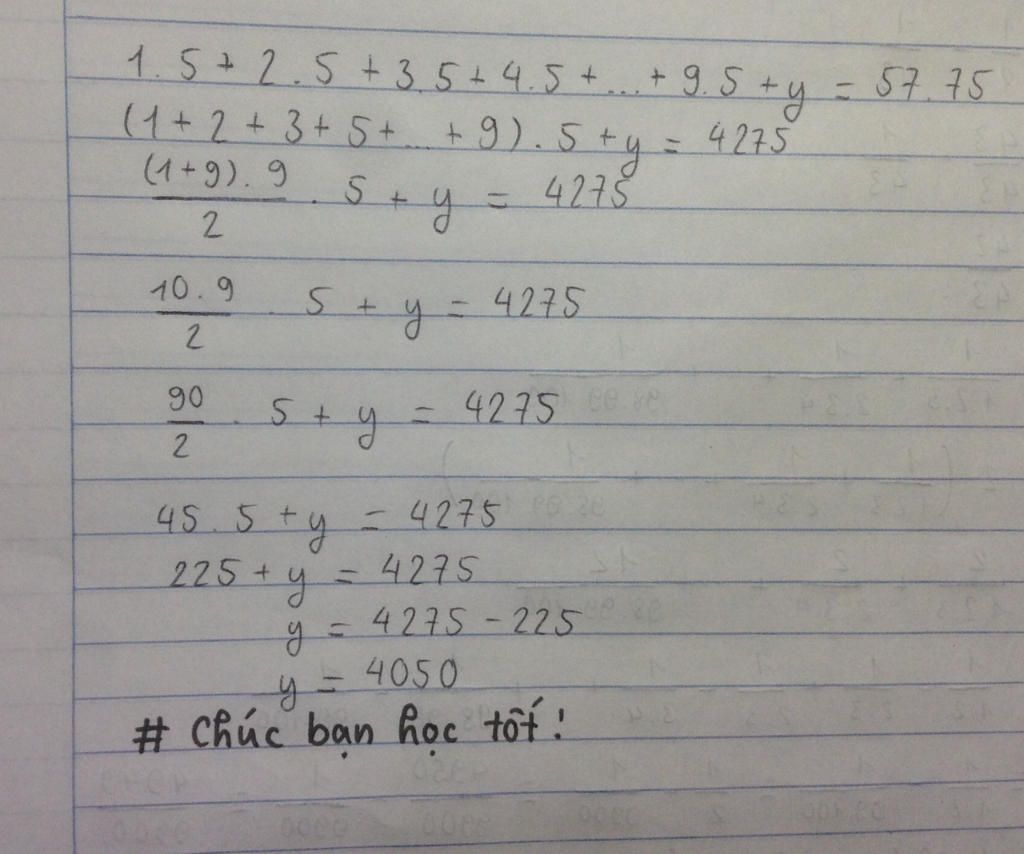 1.5 + 2.5 + 3.5 + 4.5 + ... + 9.5 + y = 57.75
(1 + 2 + 3 + 5 + ... + 9) . 5 + y = 4275
(1+9) . 9 / 2 . 5 + y = 4275
10 . 9 / 2 . 5 + y = 4275
90 / 2 . 5 + y = 4275
45 . 5 + y = 4275
225 + y = 4275
y = 4275 - 225
y = 4050
# Chúc bạn học tốt!